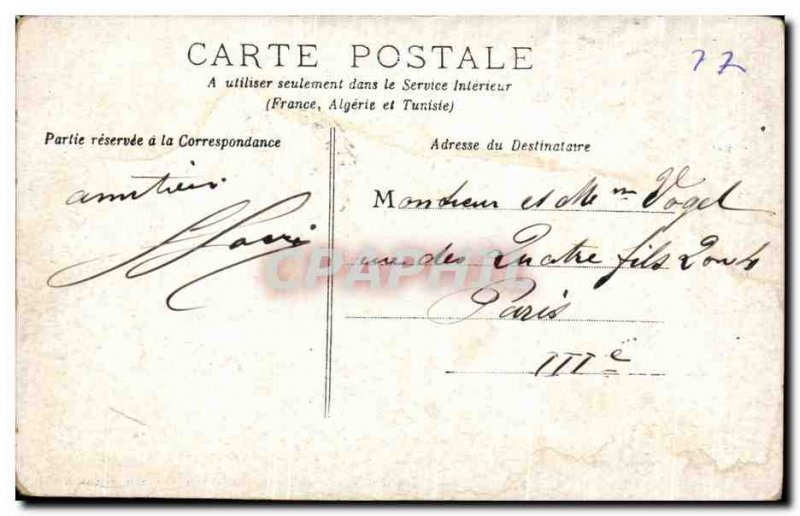 CARTE POSTALE
77
A utiliser seulement dans le Service Intérieur
(France, Algérie et Tunisie)
Partie réservée à la Correspondance
Adresse du Destinataire
amitiés
Monsieur et Mme Vogel
rue des Quatre fils 2 ou 4
Paris
IIIe
CPAPHIL